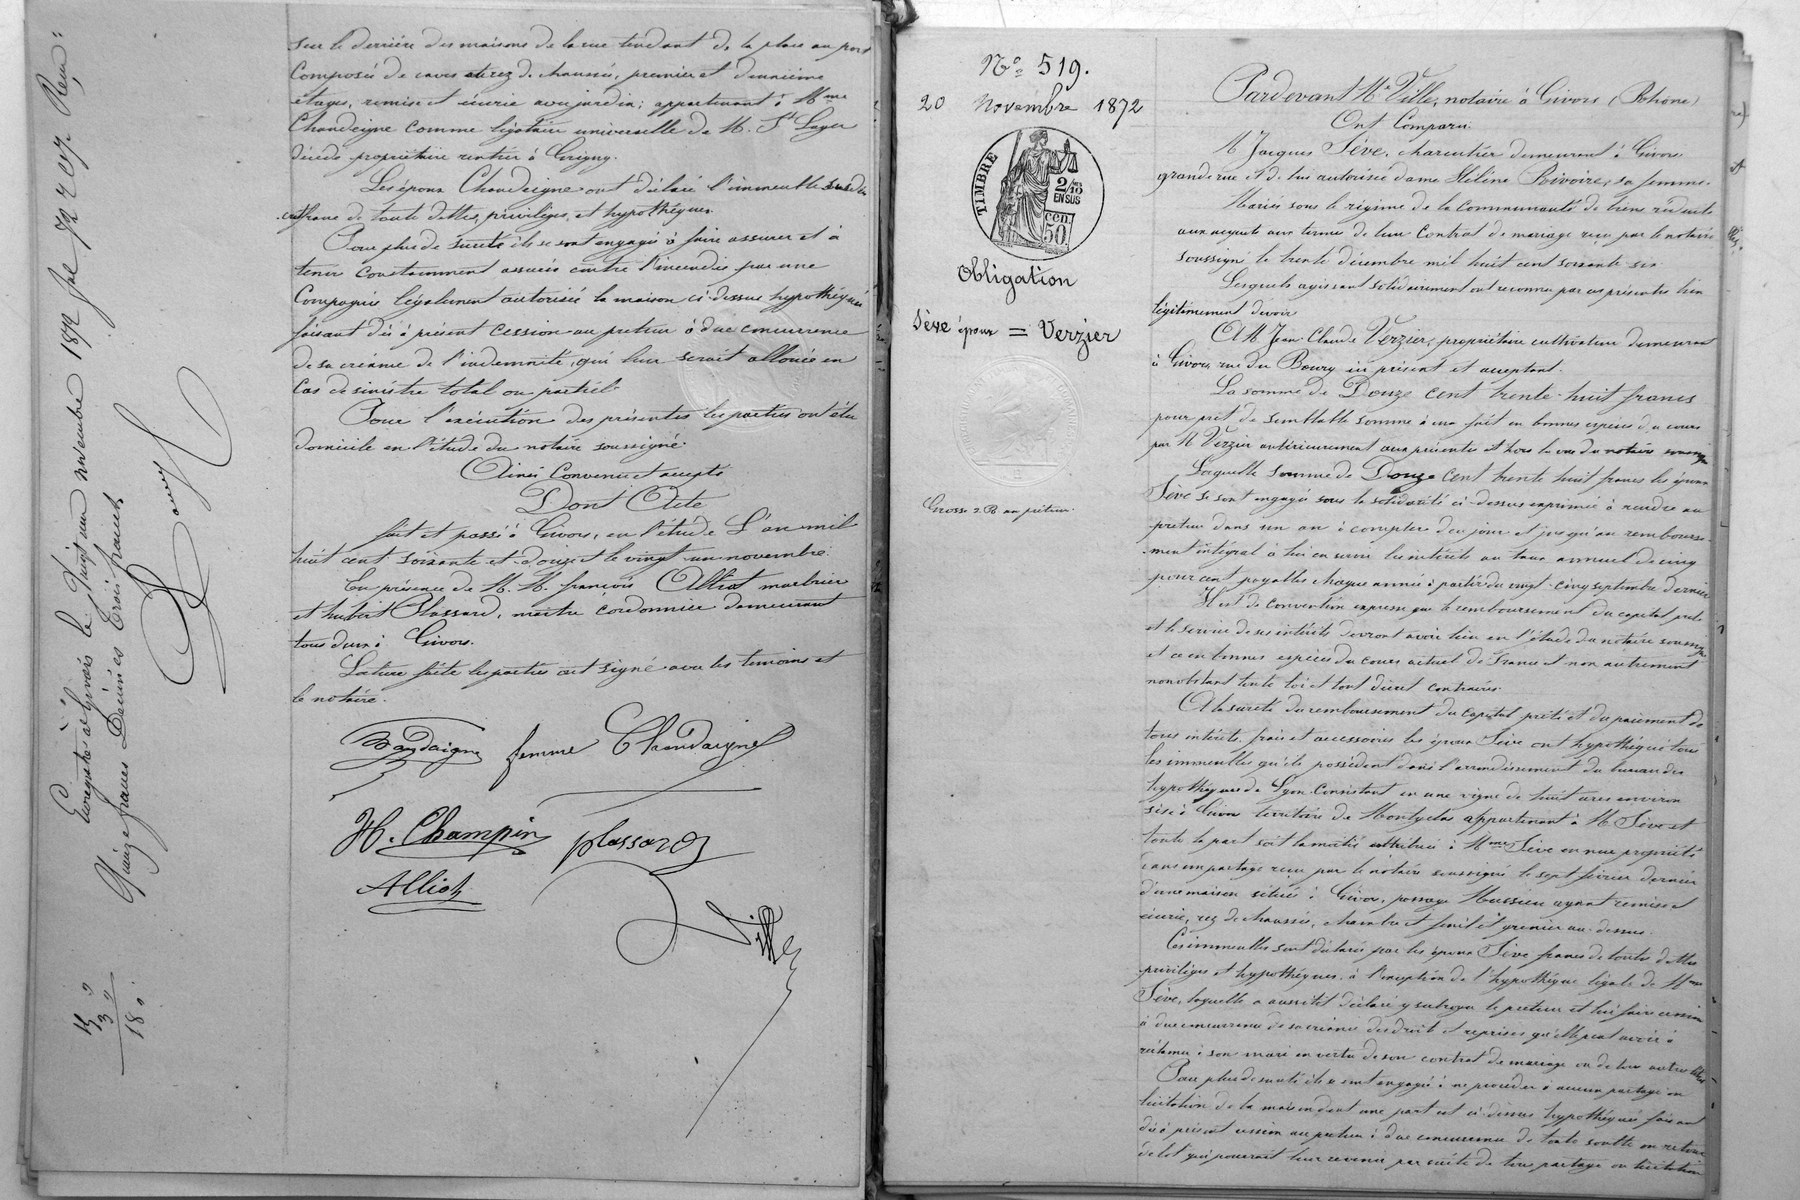 sur le derrière des maisons de la rue tendant de la place au port
Composée de caves et rez de chaussée, premier et deuxième
étages, remise et écurie avec jardin; appartenant à Mme
Chandeigne comme légataire universelle de M. St Lager
décédé propriétaire rentier à Grigny.
Les époux Chandeigne ont déclaré l'immeuble susdésigné
franc de toute dettes, privilèges, et hypothèques
Pour plus de sureté ils se sont engagés à faire assurer et à
tenir constamment assurée contre l'incendie par une
Compagnie légalement autorisée la maison ci-dessus hypothéquée
faisant dès à présent cession au prêteur à due concurrence
de sa créance de l'indemnité, qui leur serait allouée en
cas de sinistre total ou partiel.
Pour l'exécution des présentes les parties ont élu
domicile en l'étude du notaire soussigné.
Ainsi convenu et accepté
Dont Acte
fait et passé à Givors, en l'étude L'an mil
huit cent soixante et douze et le vingt-un novembre.
En présence de M. M. françois Alliot marbrier
et hubert Plassard, maître cordonnier demeurant
tous deux à Givors.
Lecture faite les parties ont signé avec les témoins et
le notaire.
Chandaigne femme Chandaigne
H. Champin plassard
Alliot
Ville
Enregistré à Givors le Vingt un novembre 1872 Reçu:
Quinze francs Decimes Trois francs
15
3
18
No 519.
20 Novembre 1872
TIMBRE
2/10 EN SUS
50 cen
Obligation
Sève époux = Verzier
Grosse 2 R au prêteur.
Pardevant Me Ville, notaire à Givors (Rhône)
Ont Comparu
M. Jacques Sève, charcutier demeurant à Givors,
grande rue et de lui autorisée dame Hélène Rivoire, sa femme.
Mariés sous le régime de la Communauté de biens réduite
aux acquêts aux termes de leur Contrat de mariage reçu par le notaire
soussigné le trente décembre mil huit cent soixante six
Lesquels agissant solidairement ont reconnu par ces présentes bien
légitimement devoir
A M. Jean Claude Verzier, propriétaire cultivateur demeurant
à Givors, rue du Bourg ici présent et acceptant.
La somme de Douze cent trente-huit francs
pour prêt de semblable somme à eux fait en bonnes espèces du cours
par M Verzier antérieurement aux présentes et hors la vue du notaire soussigné
Laquelle somme de Douze cent trente huit francs les époux
Sève se sont engagés sous la solidarité ci-dessus exprimée à rendre au
prêteur dans un an à compter de ce jour et jusqu'au rembourse-
ment intégral à lui en servir les intérêts au taux annuel de cinq
pour cent payables chaque année à partir du vingt-cinq septembre dernier
Il est de convention expresse que le remboursement du capital prêté
et le service de ses intérêts devront avoir lieu en l'étude du notaire soussigné
et ce en bonnes espèces du cours actuel de France et non autrement
nonobstant toute loi et tout décret contraires.
A la sureté du remboursement du capital prêté et du paiement de
tous intérêts, frais et accessoires les époux Sève ont hypothéqué tous
les immeubles qu'ils possèdent dans l'arrondissement du bureau des
hypothèques de Lyon Consistant en une vigne de huit ares environ
sise à Givors territoire de Montgelas appartenant à M. Sève et
toute la part soit la moitié attribuée à Mme Sève en nue propriété
dans un partage reçu par le notaire soussigné le sept février dernier
d'une maison située à Givors, passage Mussieu ayant remise et
écurie, rez de chaussée, chambre et fenil et grenier au-dessus.
Ces immeubles sont déclarés par les époux Sève francs de toutes dettes
privilèges et hypothèques, à l'exception de l'hypothèque légale de Mme
Sève, laquelle a aussitôt déclaré y subroger le prêteur et lui faire cession
à due concurrence de sa créance des droits et reprises qu'elle peut avoir à
réclamer à son mari en vertu de son contrat de mariage ou de tous autres titres
Pour plus de sureté ils se sont engagés à ne procéder à aucun partage ou
licitation de la maison dont une part est ci-dessus hypothéquée faisant
dès à présent cession au prêteur à due concurrence de toute soulte ou retour
de lot qui pourrait leur revenir par suite de tous partage ou licitation